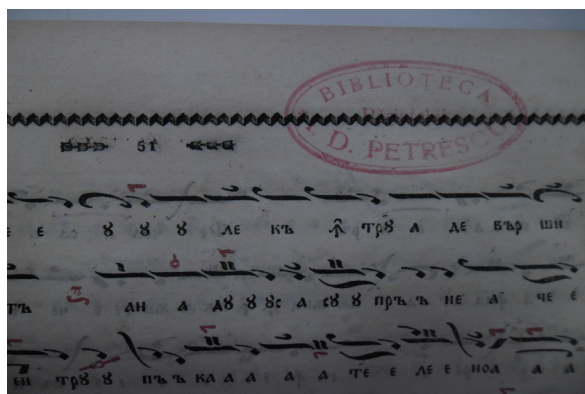 BIBLIOTECA
I. D. PETRESCU
51
Е Е Ȣ Ȣ Ȣ ЛЕ КЪ ꙟ ТРȢ А ДЕ ВЪР ШИ
ТЪ АН А ДȢ Ȣ Ȣс А сȢ Ȣ ПРЪ Ъ НЕ А ЧЕ Е
ЕН ТРȢ Ȣ ПЪ Ъ КА А А А А ТЕ Е ЛЕ Е НОА А А